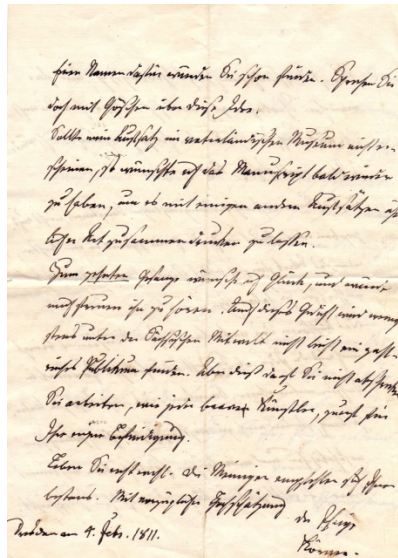 einen Namen dafür würden Sie schon finden. Sprechen Sie
doch mit Göschen über diese Idee.
Sollte mein Aufsatz im vaterländischen Museum nicht er-
scheinen, so wünschte ich das Manuscript bald wieder
zu haben, um es mit einigen andern Aufsätzen
Art zusammen drucken zu lassen.
Zum zehnten Gesange wünsche ich Glück, und würde
mich freuen ihn zu hören. Auch dieses Gedicht wird wenig-
stens unter der Mitwelt nicht leicht ein
Publikum finden. Aber dieß darf Sie nicht
Sie arbeiten, wie jeder brave Künstler, zuerst für
Ihre eigne Befriedigung.
Leben Sie recht wohl. Die Meinigen empfehlen sich Ihnen
bestens. Mit vorzüglicher Hochschätzung
der Ihrige
Körner.
Dresden am 4. Febr. 1811.